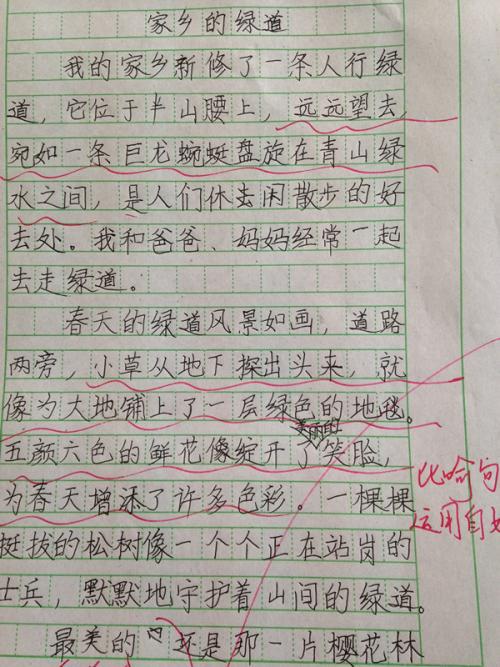 家乡的绿道
我的家乡新修了一条人行绿
道，它位于半山腰上，远远望去，
宛如一条巨龙蜿蜒盘旋在青山绿
水之间，是人们休去闲散步的好
去处。我和爸爸、妈妈经常一起
去走绿道。
春天的绿道风景如画，道路
两旁，小草从地下探出头来，就
像为大地铺上了一层绿色的地毯。
美丽的
五颜六色的鲜花像绽开了笑脸，
为春天增添了许多色彩。一棵棵
比喻句
运用自如
挺拔的松树像一个个正在站岗的
士兵，默默地守护着山间的绿道。
最美的 还是那一片樱花林